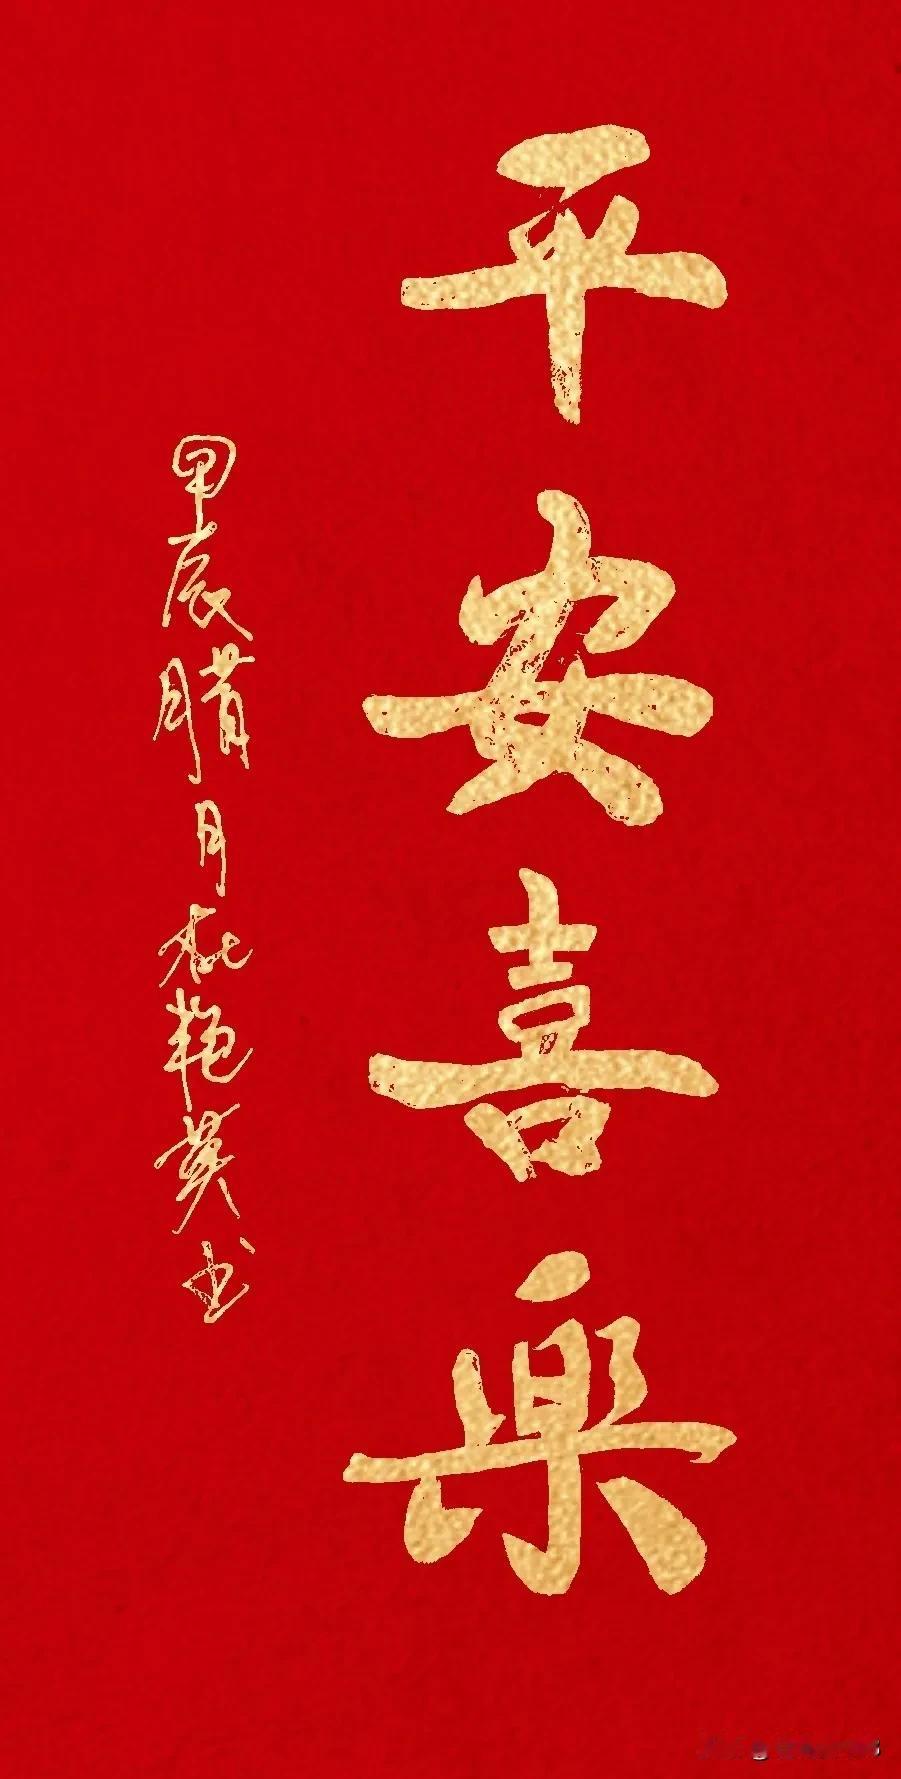 平安喜樂
甲辰腊月 艳英书